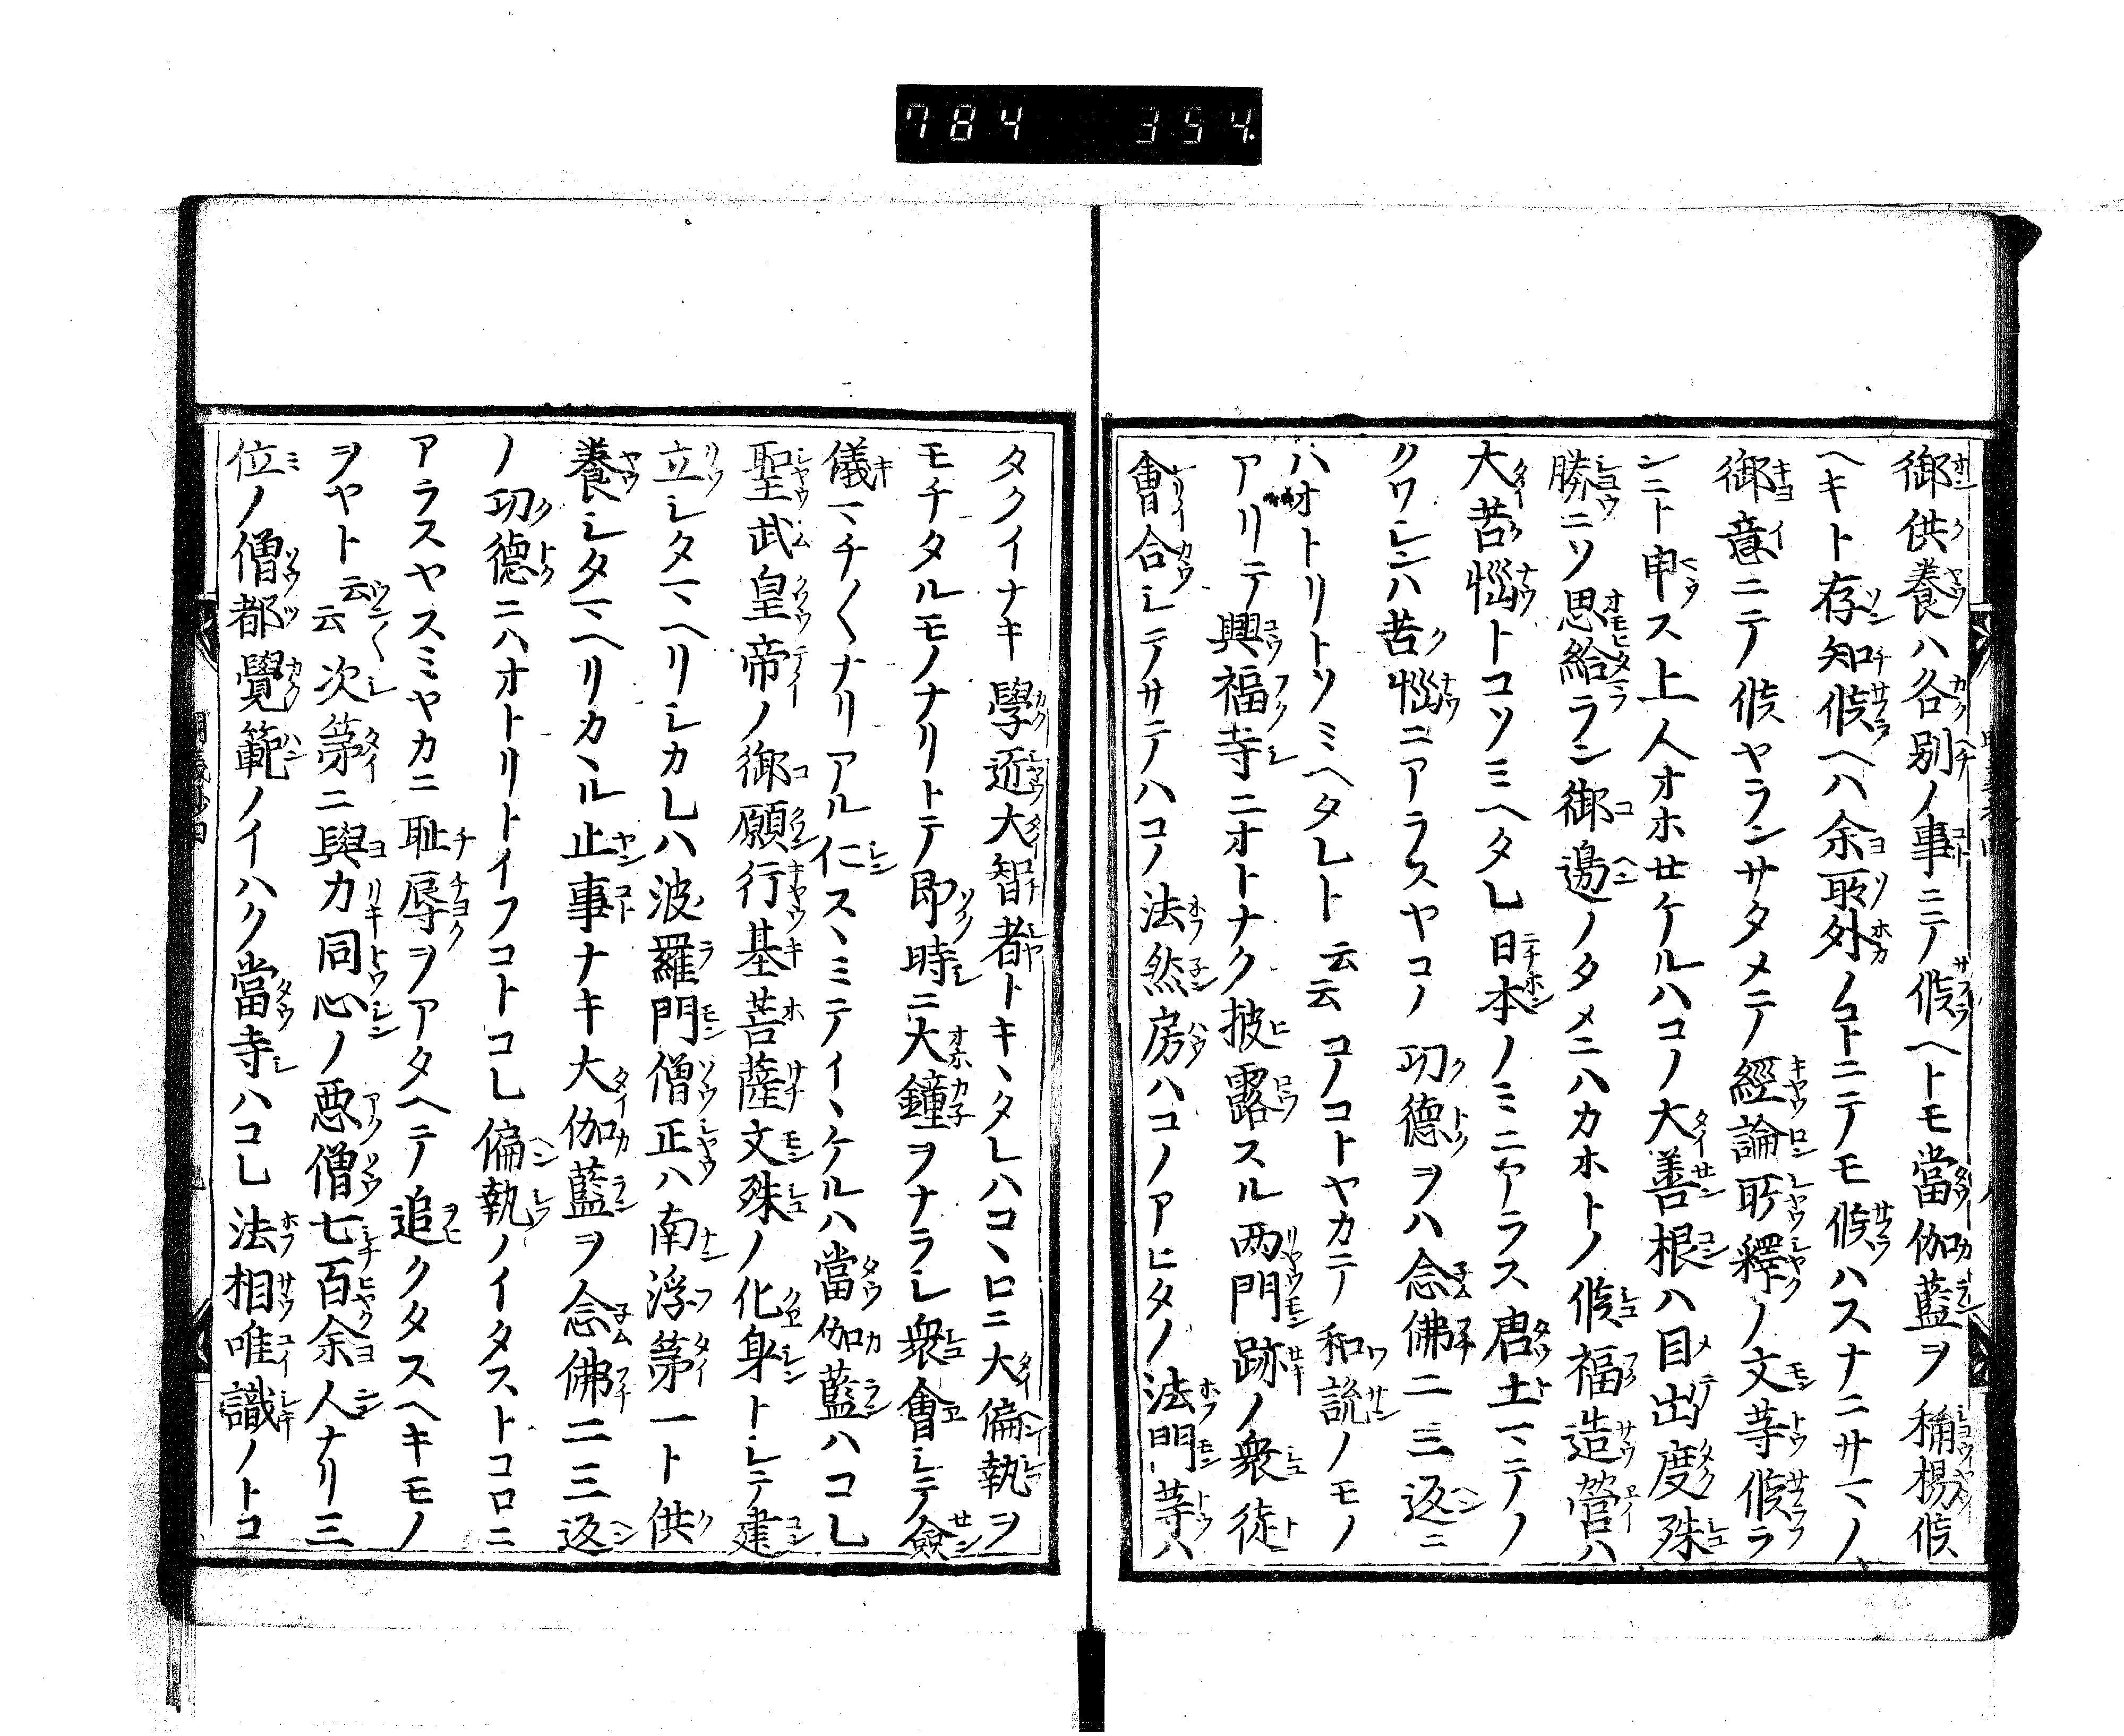 784 354.
御供養ハ各別ノ事ニテ候ヘトモ當伽藍ヲ稱楊候
ヘキト存知候ヘハ余所外ノコトニテモ候ハスナニサマノ
御意ニテ候ヤランサタメテ經論所釋ノ文等候ラ
ンニト申ス上人オホセケルハコノ大善根ハ目出度殊
勝ニソ思給ラン御邊ノタメニハカホトノ候福造營ハ
大苦惱トコソミヘタレ日本ノミニヤラス唐土マテノ
クワレンハ苦惱ニアラスヤコノ功德ヲハ念佛二三返ニ
ハオトリトソミヘタレト云云コノコトヤカテ和讒ノモノ
アリテ興福寺ニオトナク披露スル两門跡ノ衆徒
會合シテサテハコノ法然房ハコノアヒタノ法門等ハ
タクイナキ學近大智者トキヽタレハコヽロニ大偏執ヲ
モチタルモノナリトテ即時ニ大鐘ヲナラシ衆會シテ僉
儀マチ〱ナリアル仁スヽミテイヽケルハ當伽藍ハコレ
聖武皇帝ノ御願行基菩薩文殊ノ化身トシテ建
立シタマヘリシカレハ波羅門僧正ハ南浮第一ト供
養シタマヘリカヽル止事ナキ大伽藍ヲ念佛二三返
ノ功德ニハオトリトイフコトコレ偏執ノイタストコロニ
アラスヤスミヤカニ耻辱ヲアタヘテ追クタスヘキモノ
ヲヤト云云次第ニ與力同心ノ悪僧七百余人ナリ三
位ノ僧都覺範ノイハク當寺ハコレ法相唯識ノトコ